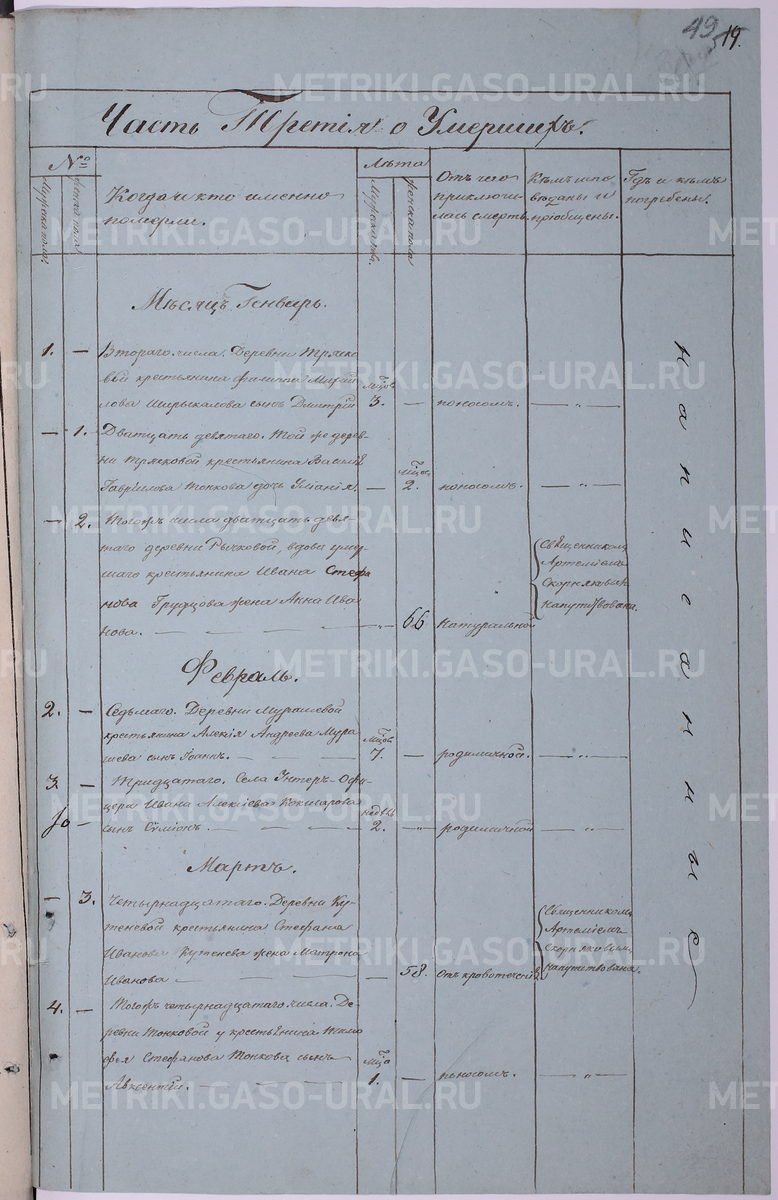 49
19.
Часть Третія о Умершихъ.
№
Лѣта
Мужеска пола.
Женска пола
Когда и кто именно
померли.
Мужеска
Женска пола
Отъ чего
приключи-
лась смерть.
Кѣмъ испо
вѣданы и
пріобщены.
Гдѣ и кѣмъ
погребены.
Мѣсяцъ Генварь.
1. — Втораго числа. Деревни Тряско
вой крестьянина Филипа
лова Ширыкалова сынъ Дмитрій мцов 3. — поносомъ. — „ —
— 1. Дватцать девятаго. Той же дерев-
ни Трясковой крестьянина Василія
Гавріилова Тонкова дочь — мцов 2. поносомъ. — „ —
— 2. Тогожъ числа дватцать девя-
таго деревни Рычковой, вдова умер-
шаго крестьянина Ивана Стефа
нова Грудцова жена Анна Ива
нова. — „ — 66 натуральной
Священникомъ
Артеміемъ
Скорняковым
напутствована.
Февраль.
2. — Седьмаго. Деревни Мурашевой
крестьянина Алексія Андреева Мура
шева сынъ Іоаннъ. мцов 7. — родимичной. — „ —
3 — Тридцатаго. Села Унтеръ-Офи
цера Ивана Алексіева Кокшарова
сынъ Сѵміонъ. недѣль 2. — „ — родимичной — „ —
Мартъ.
— 3. Четырнадцатаго. Деревни Ку-
теневой крестьянина Стефана
Иванова Кутенева жена Матрона
Иванова — — 58. отъ кровотеченія
Священникомъ
Артеміемъ
Скорняковым
напутствована.
4. — Тогожъ четырнадцатаго числа. Де-
ревни Тонковой у крестьянина Тимо
фея Стефанова Тонкова сынъ
Авксентій. мца 1. — поносомъ. — „ —
написанные
METRIKI.GASO-URAL.RU